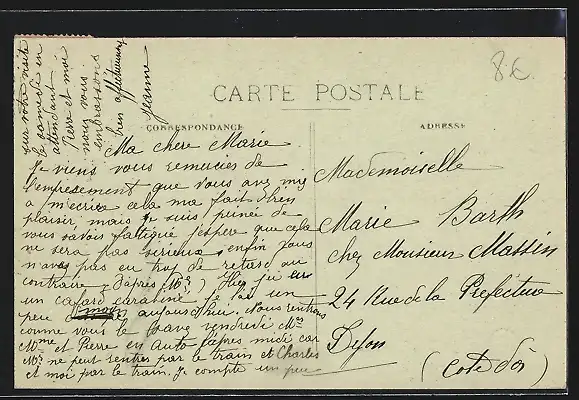 CARTE POSTALE
CORRESPONDANCE
ADRESSE
8€
Ma chere Marie
Je viens vous remercies de
l'empresement que vous avez mis
a m'ecrire cela ma fait bien
plaisir, mais je suis peinée de
vous savoir fattiguée j'espere que cela
ne sera pas serieux, enfin vous
n'avez pas eu trop de retard au
contraire, d'apres Mr.) Hier j'ai eu
un cafard carabiné je l'ai un
peu moins aujourd'hui. Nous rentrons
comme vous le savez vendredi Mr
Mme et Pierre en Auto l'apres midi car
Mr ne peut rentrer par le train et Charles
et moi par le train. Je compte un peu
sur votre visite
le samedi en
attendant
Pierre et moi
nous vous
embrassons
bien affectueus
Jeanne
Mademoiselle
Marie Barth
chez Monsieur Massin
24 Rue de la Prefecture
Dijon
(Cote d'or)